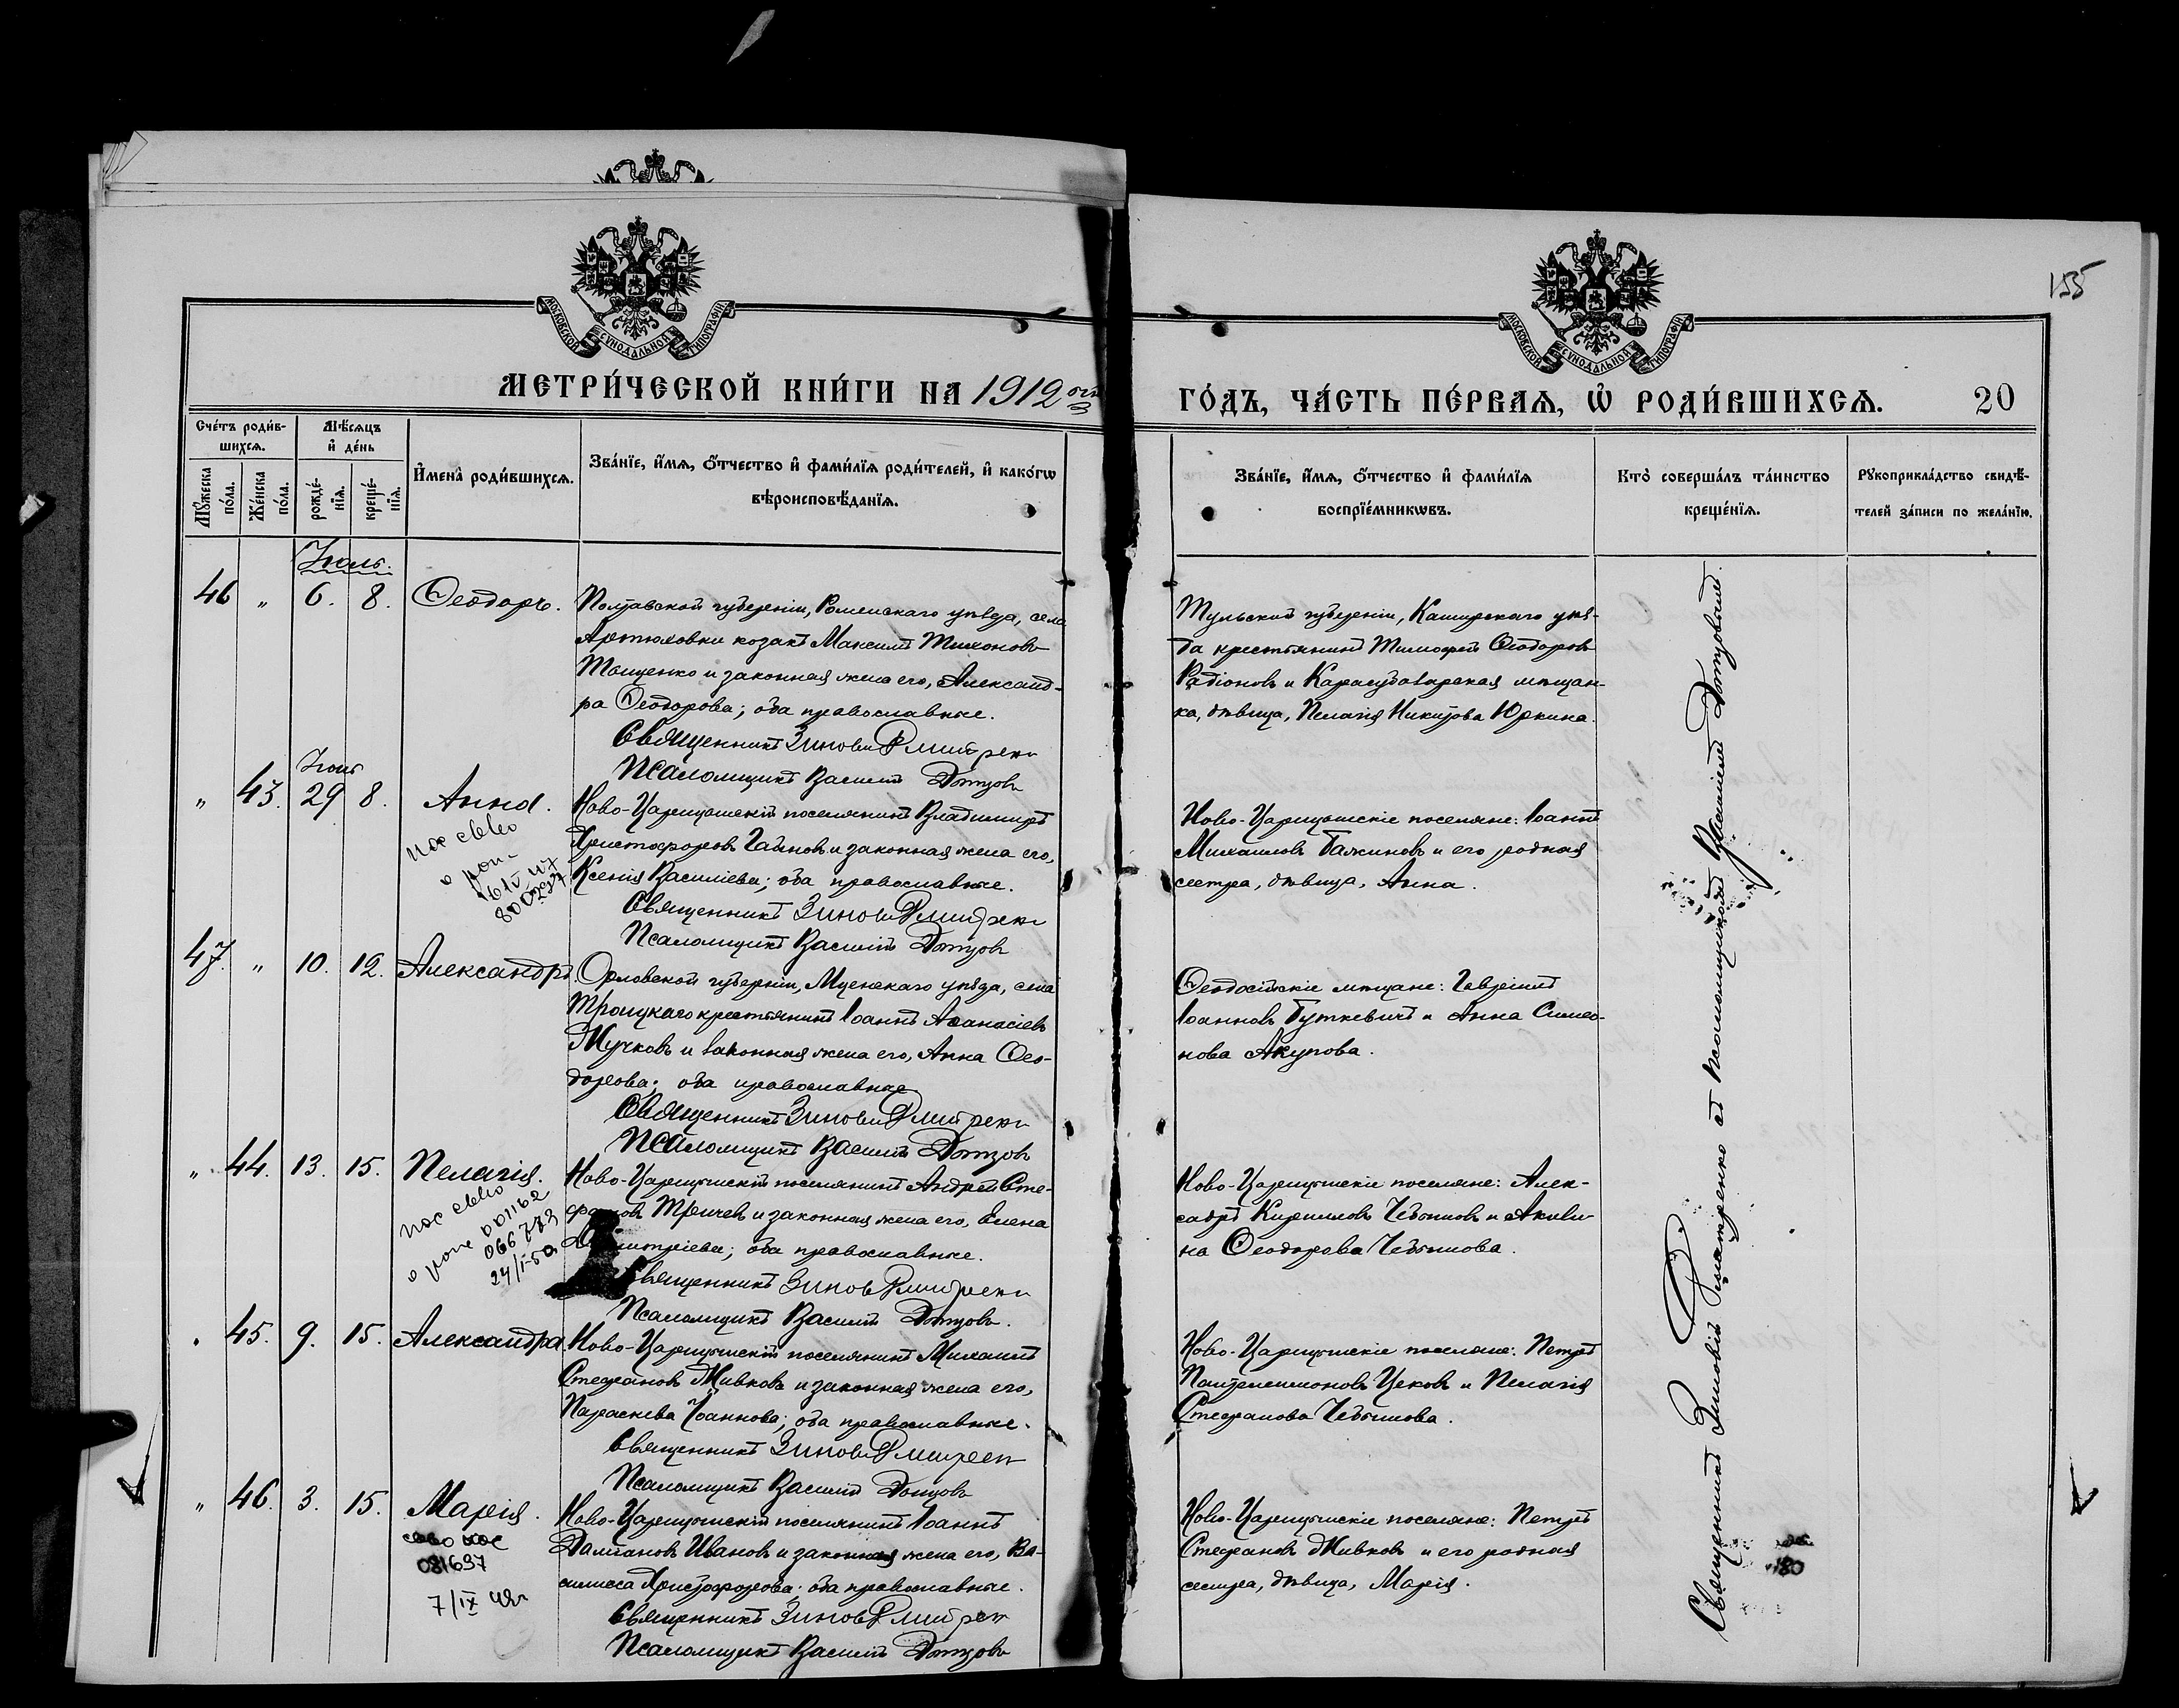 155
МОСКОВСКОЙ СѴНОДАЛЬНОЙ ТИПОГРАФІИ.
МОСКОВСКОЙ СѴНОДАЛЬНОЙ ТИПОГРАФІИ.
МЕТРИ́ЧЕСКОЙ КНИ́ГИ НА 1912
ГО́ДЪ, ЧА́СТЬ ПЕ́РВАЯ, Ѡ҆ РОДИ́ВШИХСЯ. 20
Сче́тъ роди́в-
шихся.
Мꙋ́жеска по́ла.
Же́нска по́ла.
Мѣ́сяцъ и҆ де́нь
рожде́-нїя.
креще́-нїя.
И҆мена̀ роди́вшихся.
Зва́нїе, и҆́мя, ѻ҆́тчество и҆ фами́лїя роди́телей, и҆ како́гѡ
вѣроисповѣ́данїя.
Зва́нїе, и҆́мя, ѻ҆́тчество и҆ фами́лїя
воспрїе́мникѡвъ.
Кто̀ соверша́лъ та́инство
креще́нїя.
Рꙋкоприкла́дство свидѣ́-
телей за́писи по жела́нїю.
Іюль.
46 " 6. 8. Ѳеодоръ.
Полтавской губерніи, Роменскаго уѣзда, села
Артюховки козакъ Максимъ Тихоновъ
Тищенко и законная жена его, Александ-
ра Ѳеодорова; оба православные.
Священникъ Зиновій Дмитренко
Псаломщикъ Василій Донцовъ
Тульской губерніи, Каширскаго уѣз-
да крестьянинъ Тимофей Ѳеодоровъ
Радіоновъ и Карасубазарская мѣщан-
ка, дѣвица, Пелагія Никитова Юркина.
" 43. 29 8. Анна.
Ново-Царицынскій поселянинъ Владимиръ
Христофоровъ Гайновъ и законная жена его,
Ксенія Василіева; оба православные.
Священникъ Зиновій Дмитренко
Псаломщикъ Василій Донцовъ
Ново-Царицынскіе поселяне: Іоаннъ
Михаиловъ Бажиновъ и его родная
сестра, дѣвица, Анна.
47. " 10. 12. Александръ
Орловской губерніи, Мценскаго уѣзда, села
Троицкаго крестьянинъ Іоаннъ Аѳанасіевъ
Мучковъ и законная жена его, Анна Ѳео-
дорова; оба православные
Священникъ Зиновій Дмитренко
Псаломщикъ Василій Донцовъ
Ѳеодосійскіе мѣщане: Гавріилъ
Іоанновъ Буткевичъ и Анна Симео-
нова Акулова.
" 44. 13. 15. Пелагія.
001162
066773
24/I-50
Ново-Царицынскій поселянинъ Андрей Сте-
фановъ Тричевъ и законная жена его, Елена
Димитріева; оба православные.
Священникъ Зиновій Дмитренко
Псаломщикъ Василій Донцовъ.
Ново-Царицынскіе поселяне: Алек-
сандръ Кирилловъ Чебышовъ и Акили-
на Ѳеодорова Чебышова.
" 45. 9. 15. Александра
Ново-Царицынскій поселянинъ Михаилъ
Стефановъ Живковъ и законная жена его,
Параскева Іоаннова; оба православные.
Священникъ Зиновій Дмитренко
Псаломщикъ Василій Донцовъ
Ново-Царицынскіе поселяне: Петръ
Пантелеимоновъ Цековъ и Пелагія
Стефанова Чебышова.
" 46. 3. 15. Марія.
081637
7/IX
Ново-Царицынскій поселянинъ Іоаннъ
Даміановъ Ивановъ и законная жена его, Ва-
силисса Христофорова; оба православные.
Священникъ Зиновій Дмитренко
Псаломщикъ Василій Донцовъ
Ново-Царицынскіе поселяне: Петръ
Стефановъ Живковъ и его родная
сестра, дѣвица, Марія.
Священникъ Зиновій Димитренко съ псаломщикомъ Василіемъ Донцовымъ.